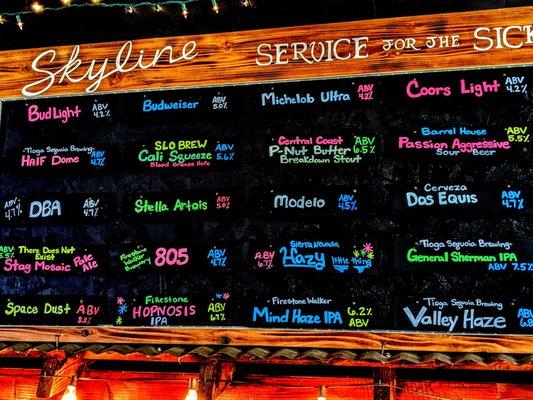 Skyline SERVICE FOR THE SICK
Bud Light ABV 4.2%
Budweiser ABV 5.0%
Michelob Ultra ABV 4.2%
Coors Light ABV 4.2%
Tioga Sequoia Brewing
Half Dome ABV 4.7%
SLO BREW
Cali Squeeze ABV 5.6%
Blood Orange Hefe
Central Coast
P-Nut Butter ABV 6.5%
Breakdown Stout
Barrel House
Passion Aggressive ABV 5.5%
Sour Beer
ABV 4.7% DBA ABV 4.7%
Stella Artois ABV 5.0%
Modelo ABV 4.5%
Cerveza
Dos Equis ABV 4.7%
There Does Not
Exist
Stag Mosaic Pale Ale
Firestone Walker Brewery 805 ABV 4.7%
Sierra Nevada
ABV 6.7% Hazy little thing
Tioga Sequoia Brewing
General Sherman IPA
ABV 7.5%
Space Dust ABV
Firestone
HOPNOSIS ABV 6.7%
IPA
Firestone Walker
Mind Haze IPA 6.2% ABV
Tioga Sequoia Brewing
Valley Haze ABV